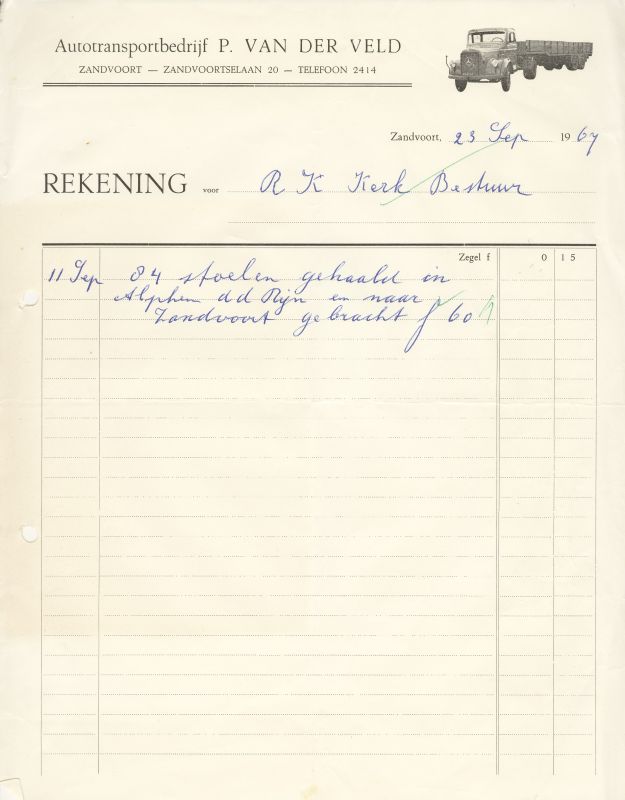 Autotransportbedrijf P. VAN DER VELD
ZANDVOORT — ZANDVOORTSELAAN 20 — TELEFOON 2414
Zandvoort, 23 Sep 1967
REKENING voor R K Kerk Bestuur
Zegel f 0 15
11 Sep 84 stoelen gehaald in
Alphen d d Rijn en naar
Zandvoort gebracht f 60